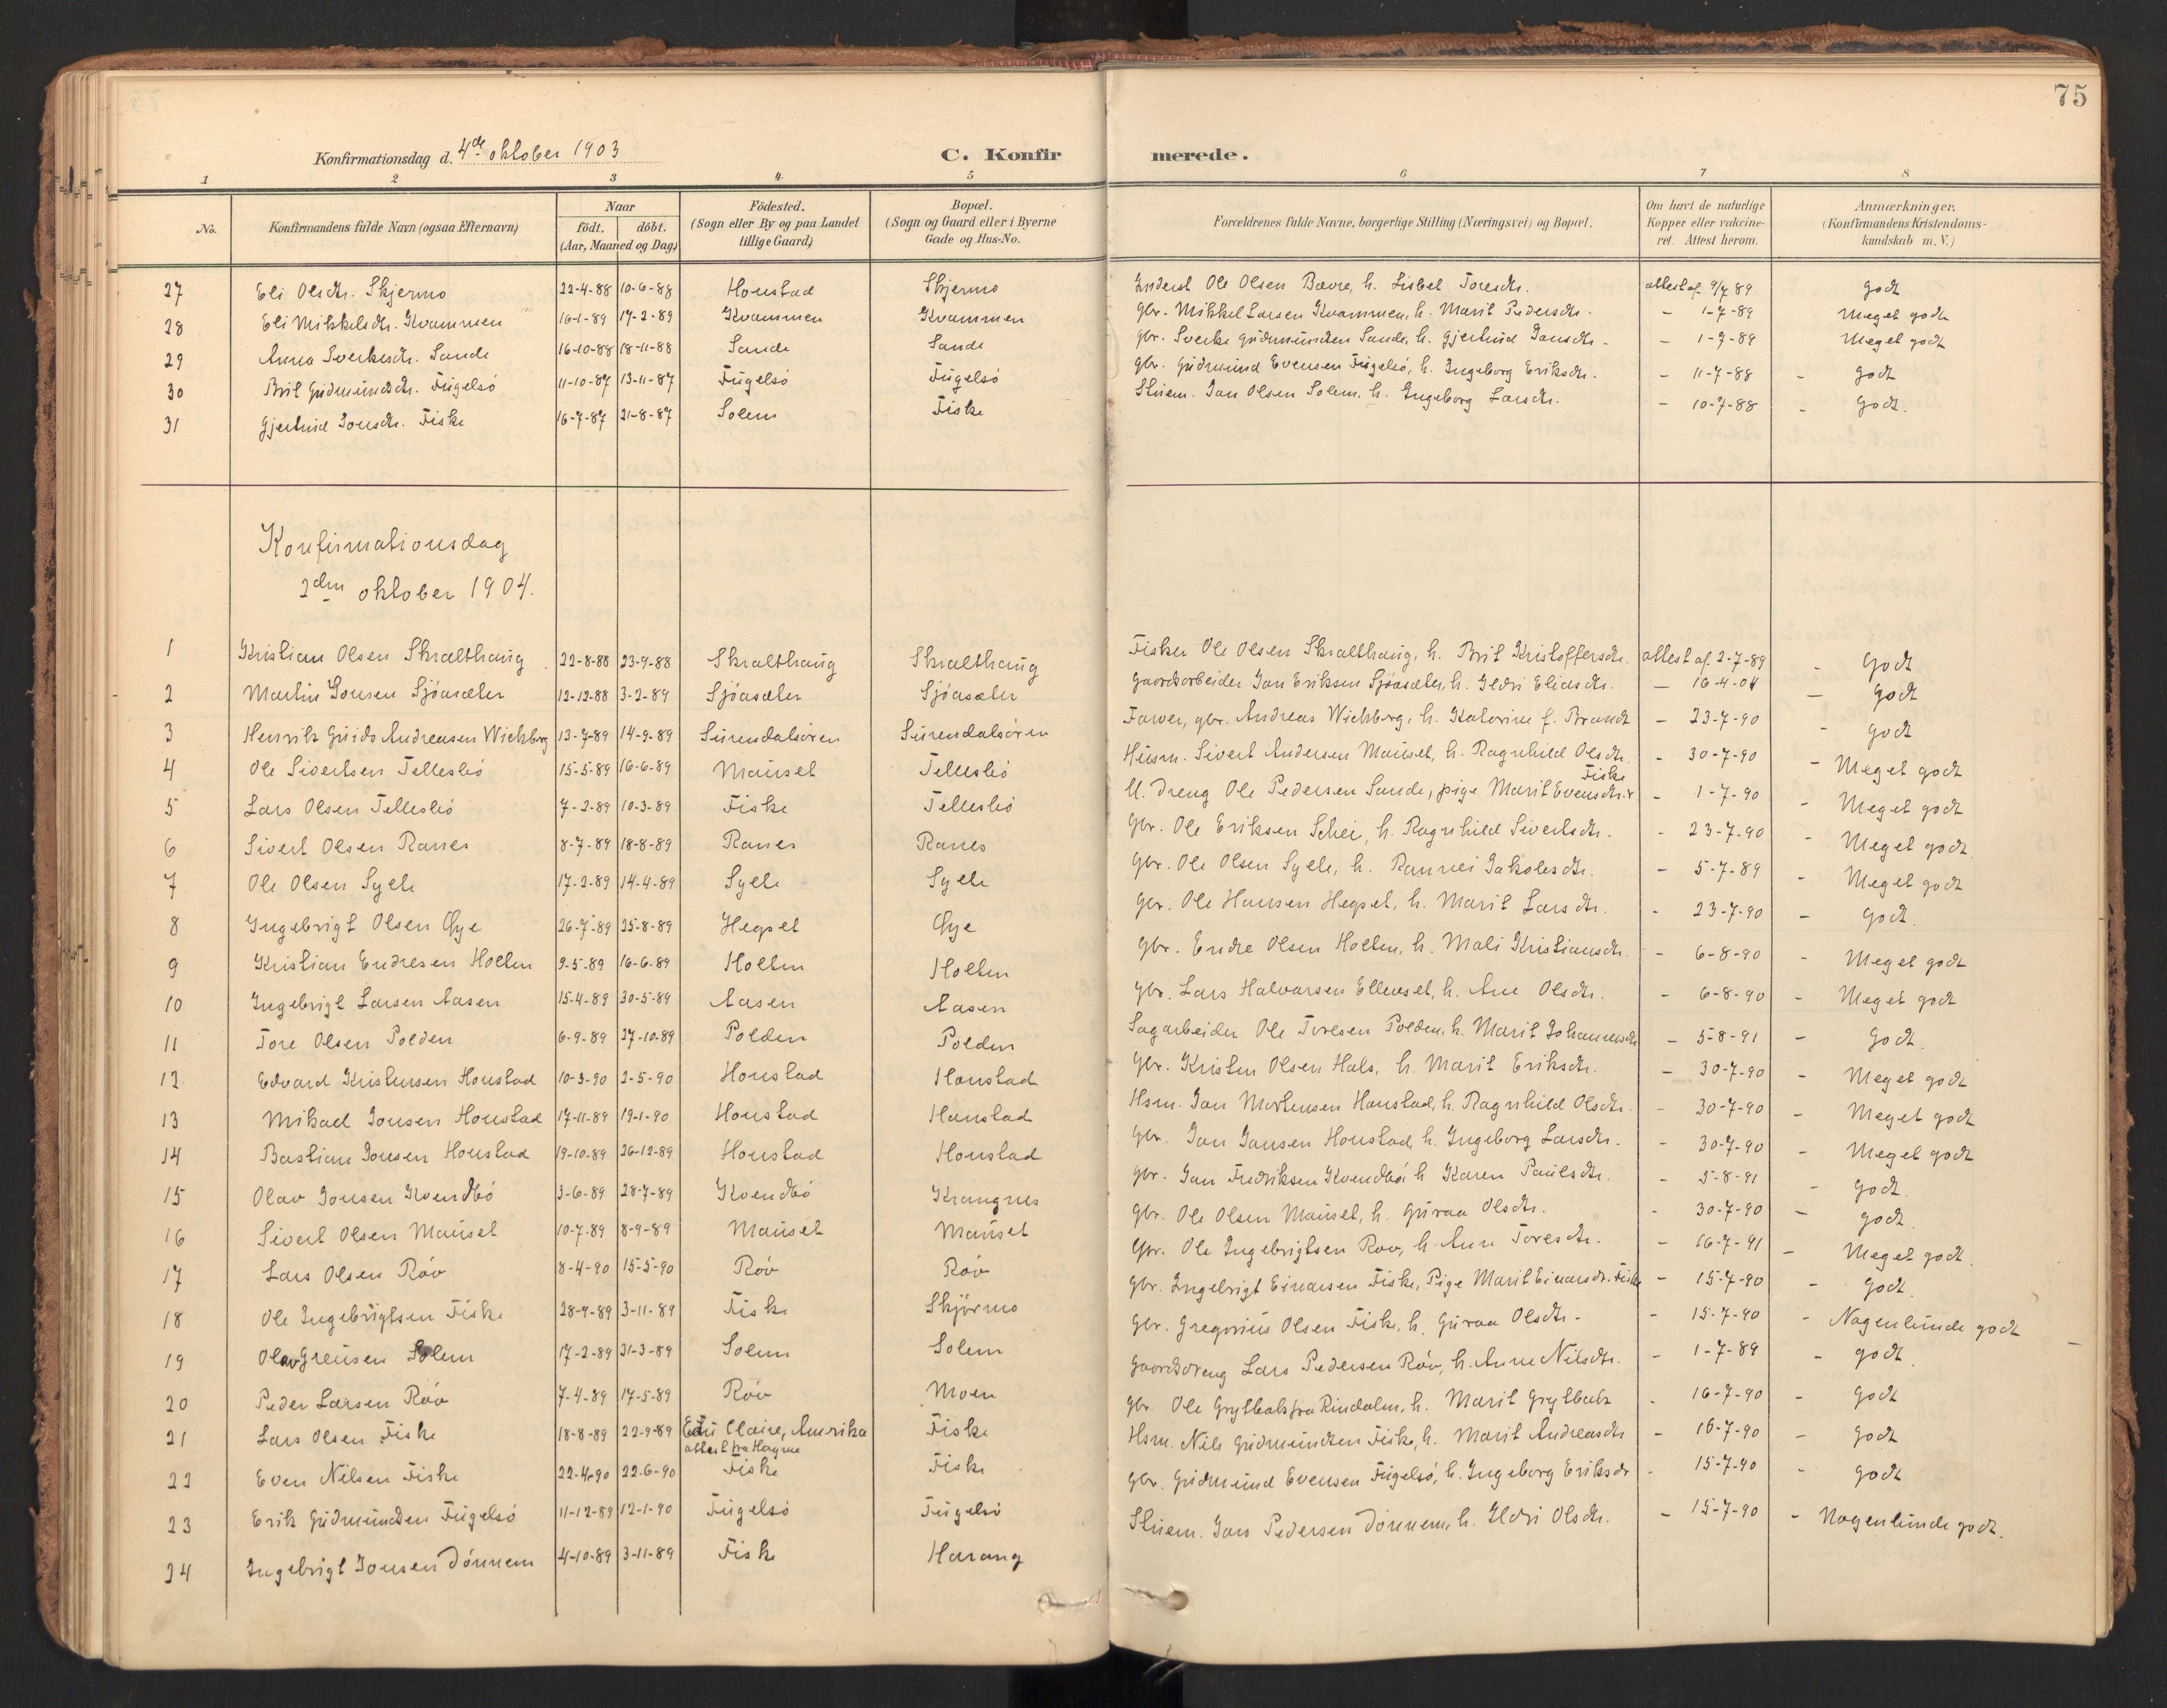 75
Konfirmationsdag d. 4de oktober 1903
C. Konfirmerede.
1 2 3 4 5 6 7 8
No.
Konfirmandens fulde Navn (ogsaa Efternavn)
Naar
födt. döbt.
(Aar, Maaned og Dag)
Födested.
(Sogn eller By og paa Landet
tillige Gaard)
Bopæl.
(Sogn og Gaard eller i Byerne
Gade og Hus-No.
Forældrenes fulde Navne, borgerlige Stilling (Næringsvei) og Bopæl.
Om havt de naturlige
Kopper eller vakcine-
ret. Attest herom.
Anmærkninger.
(Konfirmandens Kristendoms-
kundskab m. V.)
27 Eli Olsdtr. Skjermo 22-4-88 10-6-88 Honstad Skjermo Inderst Ole Olsen Bævre, h. Lisbet Toresdtr. attest af 9/7 89 godt
28 Eli Mikkelsdtr. Kvammen 16-1-89 17-2-89 Kvammen Kvammen Gbr. Mikkel Larsen Kvammen, h. Marit Pedersdtr. - 1-7-89 Meget godt
29 Anna Sverkesdtr. Sande 16-10-88 18-11-88 Sande Sande Gbr. Sverke Gudmundsen Sande, h. Gjertrud Jonsdtr. - 1-7-89 Meget godt
30 Brit Gudmundsdtr. Fugelsö 11-10-87 13-11-87 Fugelsö Fugelsö Gbr. Gudmund Evensen Fugelsö, h. Ingeborg Eriksdtr. - 11-7-88 - godt
31 Gjertrud Jonsdtr. Fiske 16-7-87 21-8-87 Solem Fiske Stuem. Jon Olsen Solem, h. Ingeborg Larsdtr. - 10-7-88 - godt.
Konfirmationsdag
2den oktober 1904.
1 Kristian Olsen Skralthaug 22-8-88 23-9-88 Skralthaug Skralthaug Fisker Ole Olsen Skralthaug, h. Brit Kristoffersdtr. attest af 2-7-89 - godt
2 Martin Jonsen Sjöasæter 12-12-88 3-2-89 Sjöasæter Sjöasæter Gaardsarbeider Jon Eriksen Sjöasæter, h. Ildri Eliasdtr. - 16-4-04 - godt
3 Henrik Guido Andreasen Wichberg 13-7-89 14-9-89 Surendalsören Surendalsören Farver, gbr. Andreas Wichberg, h. Katarine f. Brandt - 23-7-90 - godt
4 Ole Sivertsen Tellesbö 15-5-89 16-6-89 Mauset Tellesbö Husm. Sivert Andersen Mauset, h. Ragnhild Olsdtr. - 30-7-90 - Meget godt
5 Lars Olsen Tellesbö 7-2-89 10-3-89 Fiske Tellesbö U. Dreng Ole Pedersen Sande, pige Marit Evensdtr. Fiske - 1-7-90 - Meget godt
6 Sivert Olsen Ranes 8-7-89 18-8-89 Ranes Ranes Gbr. Ole Eriksen Schei, h. Ragnhild Sivertsdtr. - 23-7-90 - Meget godt
7 Ole Olsen Sylte 17-2-89 14-4-89 Sylte Sylte Gbr. Ole Olsen Sylte, h. Rannei Jakobsdtr. - 5-7-89 - Meget godt
8 Ingebrigt Olsen Öye 26-7-89 25-8-89 Hegset Öye Gbr. Ole Hansen Hegset, h. Marit Larsdtr. - 23-7-90 - godt.
9 Kristian Endresen Holten 9-5-89 16-6-89 Holten Holten Gbr. Endre Olsen Holten, h. Mali Kristiansdtr. - 6-8-90 - Meget godt
10 Ingebrigt Larsen Aasen 15-4-89 30-5-89 Aasen Aasen Gbr. Lars Halvarsen Ellevset, h. Ane Olsdtr. - 6-8-90 - Meget godt
11 Tore Olsen Polden 6-9-89 27-10-89 Polden Polden Sagarbeider Ole Toresen Polden, h. Marit Johannesdtr - 5-8-91 - godt.
12 Edvard Kristensen Honstad 10-3-90 2-5-90 Honstad Honstad Gbr. Kristen Olsen Hals, h. Marit Eriksdtr. - 30-7-90 - Meget godt
13 Mikael Jonsen Honstad 17-11-89 19-1-90 Honstad Honstad Hsm. Jon Mortensen Honstad, h. Ragnhild Olsdtr. - 30-7-90 - Meget godt
14 Bastian Jonsen Honstad 19-10-89 26-12-89 Honstad Honstad Gbr. Jon Jonsen Honstad, h. Ingeborg Larsdtr. - 30-7-90 - Meget godt
15 Olav Jonsen Kvendbö 3-6-89 28-7-89 Kvendbö Krangnes Gbr. Jon Fredriksen Kvendbö, h. Karen Paulsdtr. - 5-8-91 - godt.
16 Sivert Olsen Mauset 10-7-89 8-9-89 Mauset Mauset Gbr. Ole Olsen Mauset, h. Guraa Olsdtr. - 30-7-90 - godt.
17 Lars Olsen Röv 8-4-90 15-5-90 Röv Röv Gbr. Ole Ingebrigtsen Röv, h. Ane Toresdtr. - 16-7-91 - Meget godt.
18 Ole Ingebrigtsen Fiske 28-9-89 3-11-89 Fiske Skjörmo Gbr. Ingebrigt Einarsen Fiske, Pige Marit Einarsdtr. Fiske - 15-7-90 - godt.
19 Olav Greusen Solem 17-2-89 31-3-89 Solem Solem Gbr. Gregorius Olsen Fiske, h. Guraa Olsdtr. - 15-7-90 - Nogenlunde godt
20 Peder Larsen Röv 7-4-89 17-5-89 Röv Moen Gaardsdreng Lars Pedersen Röv, h. Anne Nilsdtr. - 1-7-89 - godt.
21 Lars Olsen Fiske 18-8-89 22-9-89 Eau Claire, Amerika Fiske Gbr. Ole Grytbak fra Rindalen, h. Marit Grytbak - 16-7-90 - godt
attest fra
22 Even Nilsen Fiske 22-4-90 22-6-90 Fiske Fiske Hsm. Nils Gudmundsen Fiske, h. Marit Andreasdtr - 16-7-90 - godt
23 Erik Gudmundsen Fugelsö 11-12-89 12-1-90 Fugelsö Fugelsö Gbr. Gudmund Evensen Fugelsö, h. Ingeborg Eriksdr - 15-7-90 - godt
24 Ingebrigt Jonsen Dönnem 4-10-89 3-11-89 Fiske Harang Stuem. Jon Pedersen Dönnem, h. Ildri Olsdtr. - 15-7-90 - Nogenlunde godt.